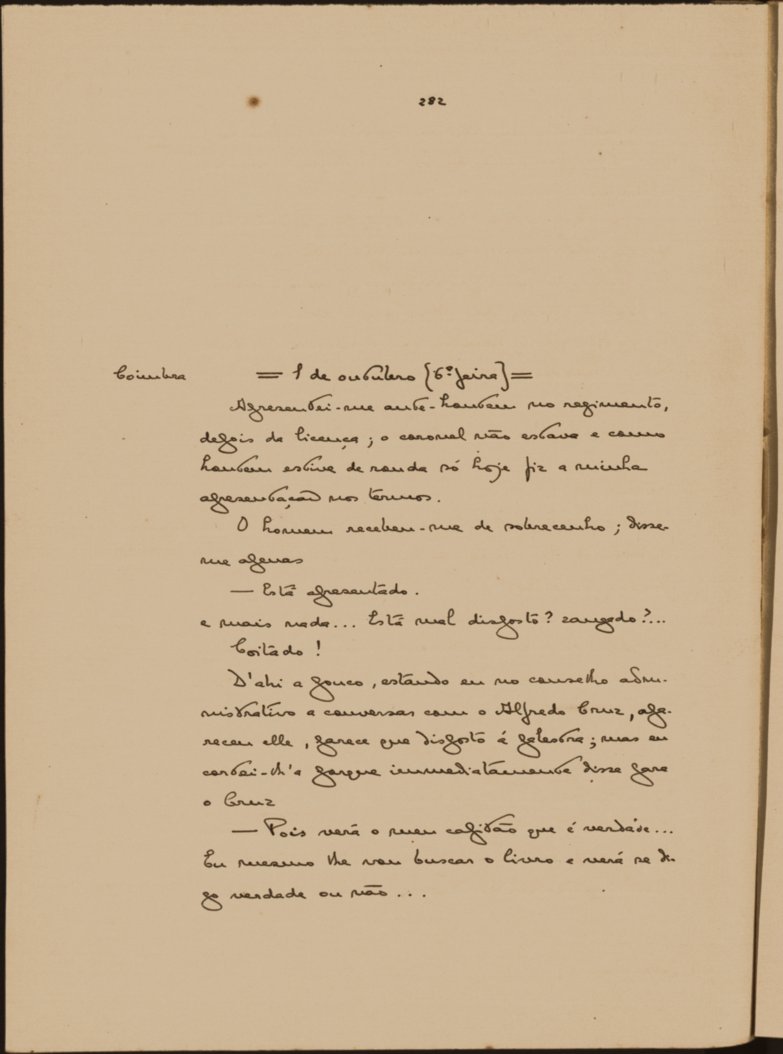 282
Coimbra = 1 de outubro [6ª feira] =
Apresentei-me ante-hontem no regimento,
depois da licença; o coronel não estava e como
hontem estive de ronda só hoje fiz a minha
apresentação nos termos.
O homem recebeu-me de sobrecenho; disse-
me apenas
— Está apresentado.
e mais nada... Está mal disposto? zangado?...
Coitado!
D'ahi a pouco, estando eu no conselho admi-
nistrativo a conversar com o Alfredo Cruz, apa-
receu elle, parece que disposto á palestra; mas eu
cortei-lh'a porque immediatamente disse para
o Cruz
— Pois verá o meu capitão que é verdade...
Eu mesmo lhe vou buscar o livro e verá se di-
go verdade ou não...